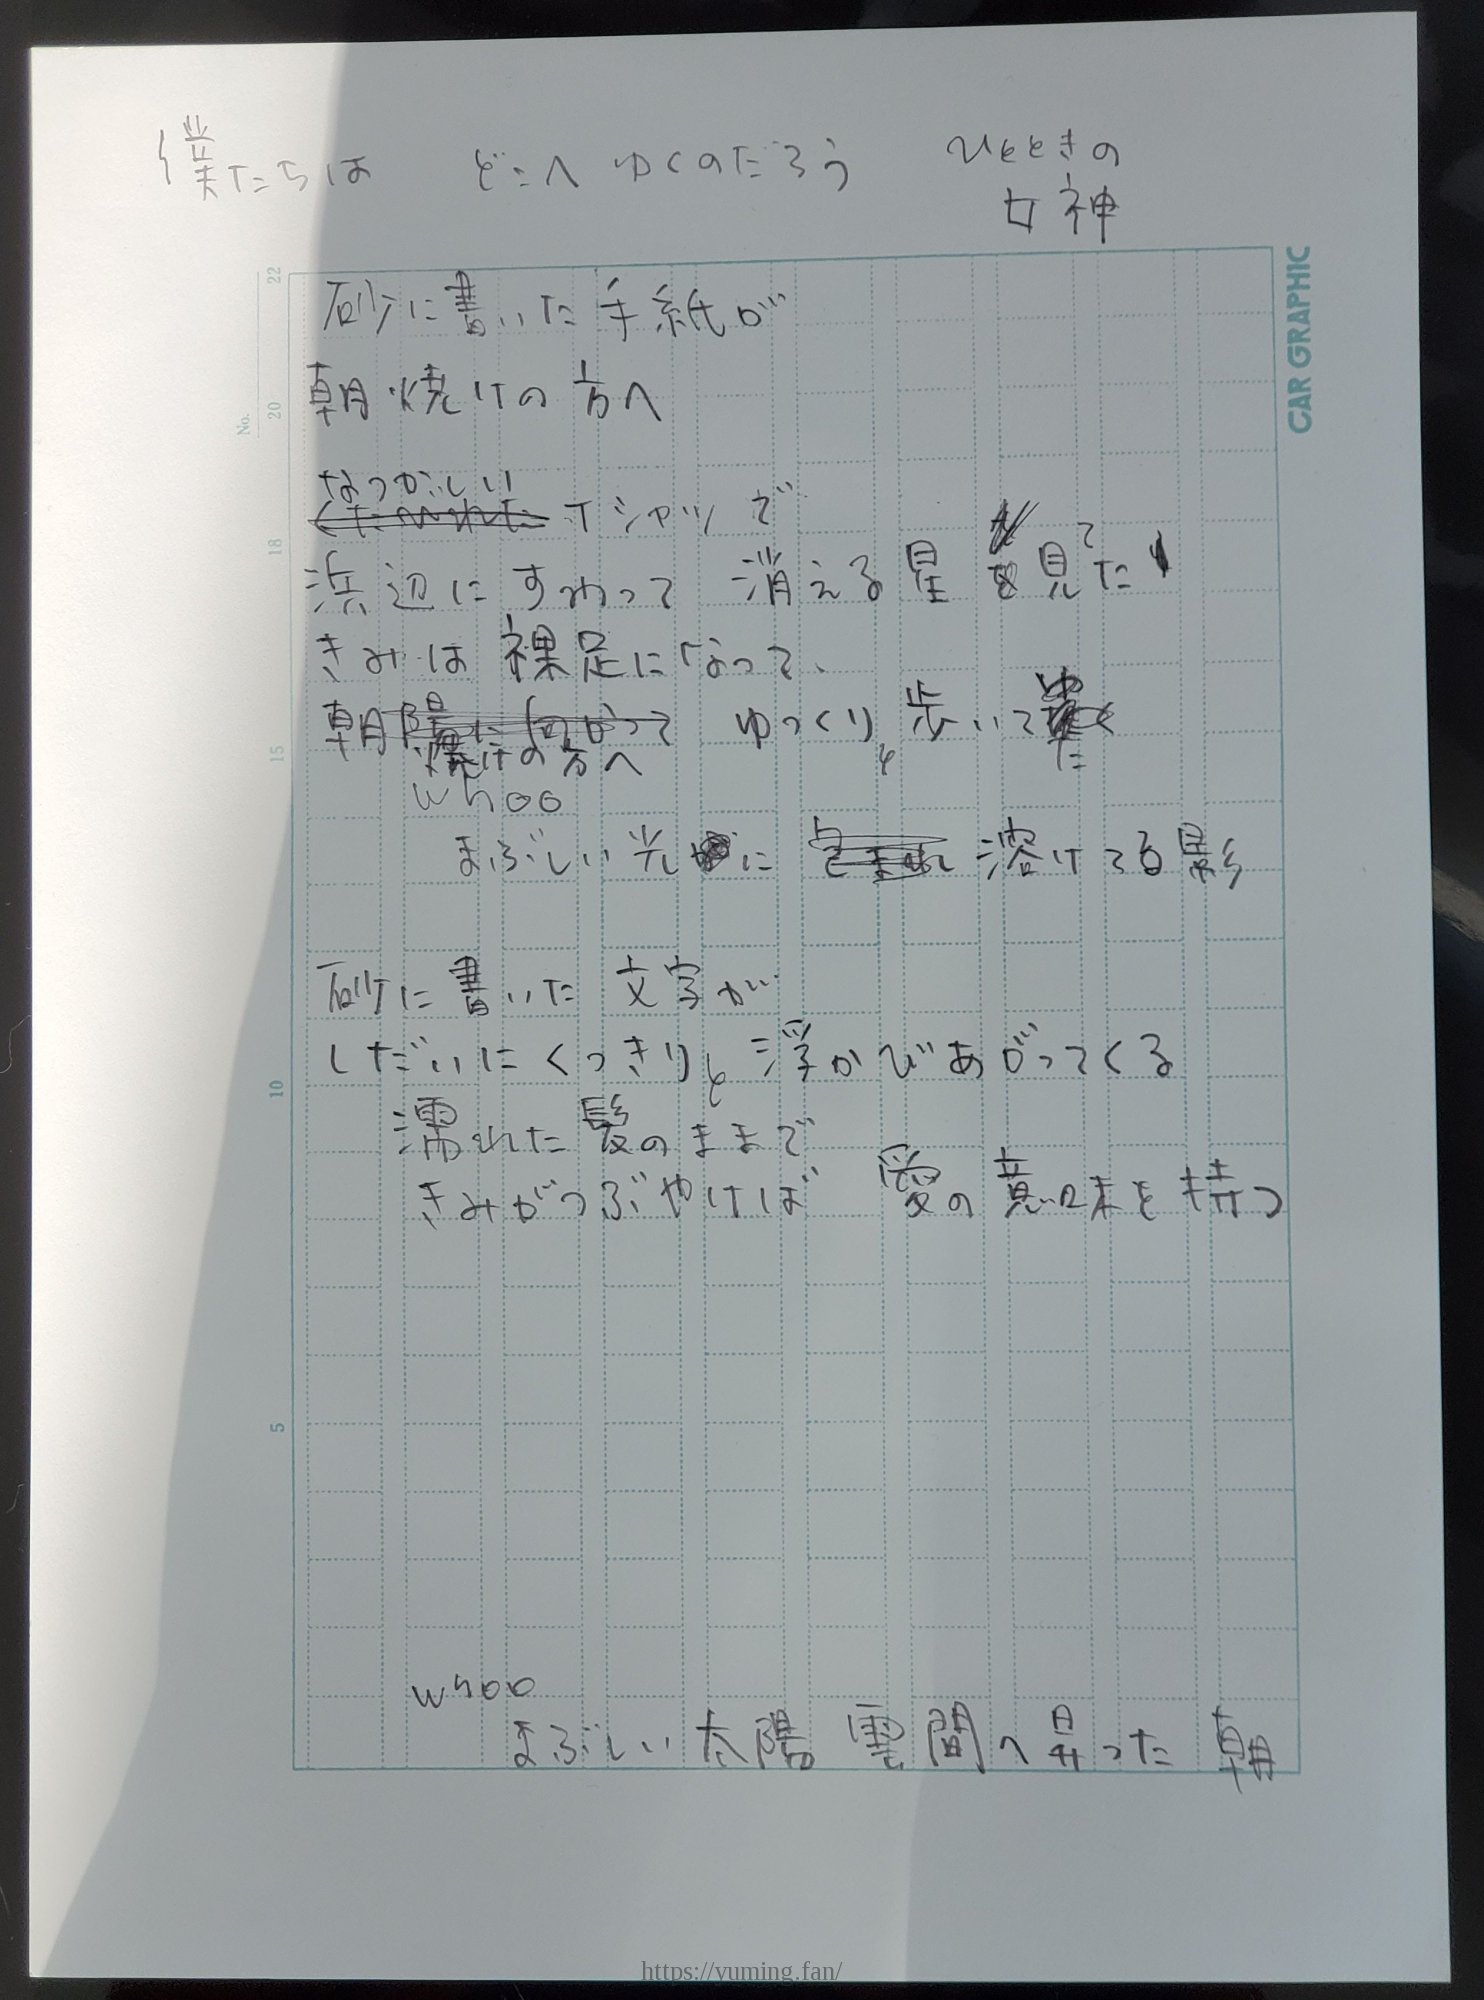 僕たちは どこへ ゆくのだろう ひとときの
女神
CAR GRAPHIC
No.
22
20
18
15
10
5
砂に書いた手紙が
朝焼けの方へ
なつかしい
くたびれた Tシャツで
浜辺に すわって 消える星を見てた
きみは 裸足になって、
朝陽に向かって ゆっくりと歩いて
焼けの方へ た
whoo
まぶしい光に 溶けてる影
砂に書いた 文字が
しだいにくっきりと浮かびあがってくる
濡れた髪のままで
きみがつぶやけば 愛の意味を持つ
whoo
まぶしい太陽 雲間へ昇った朝
https://yuming.fan/